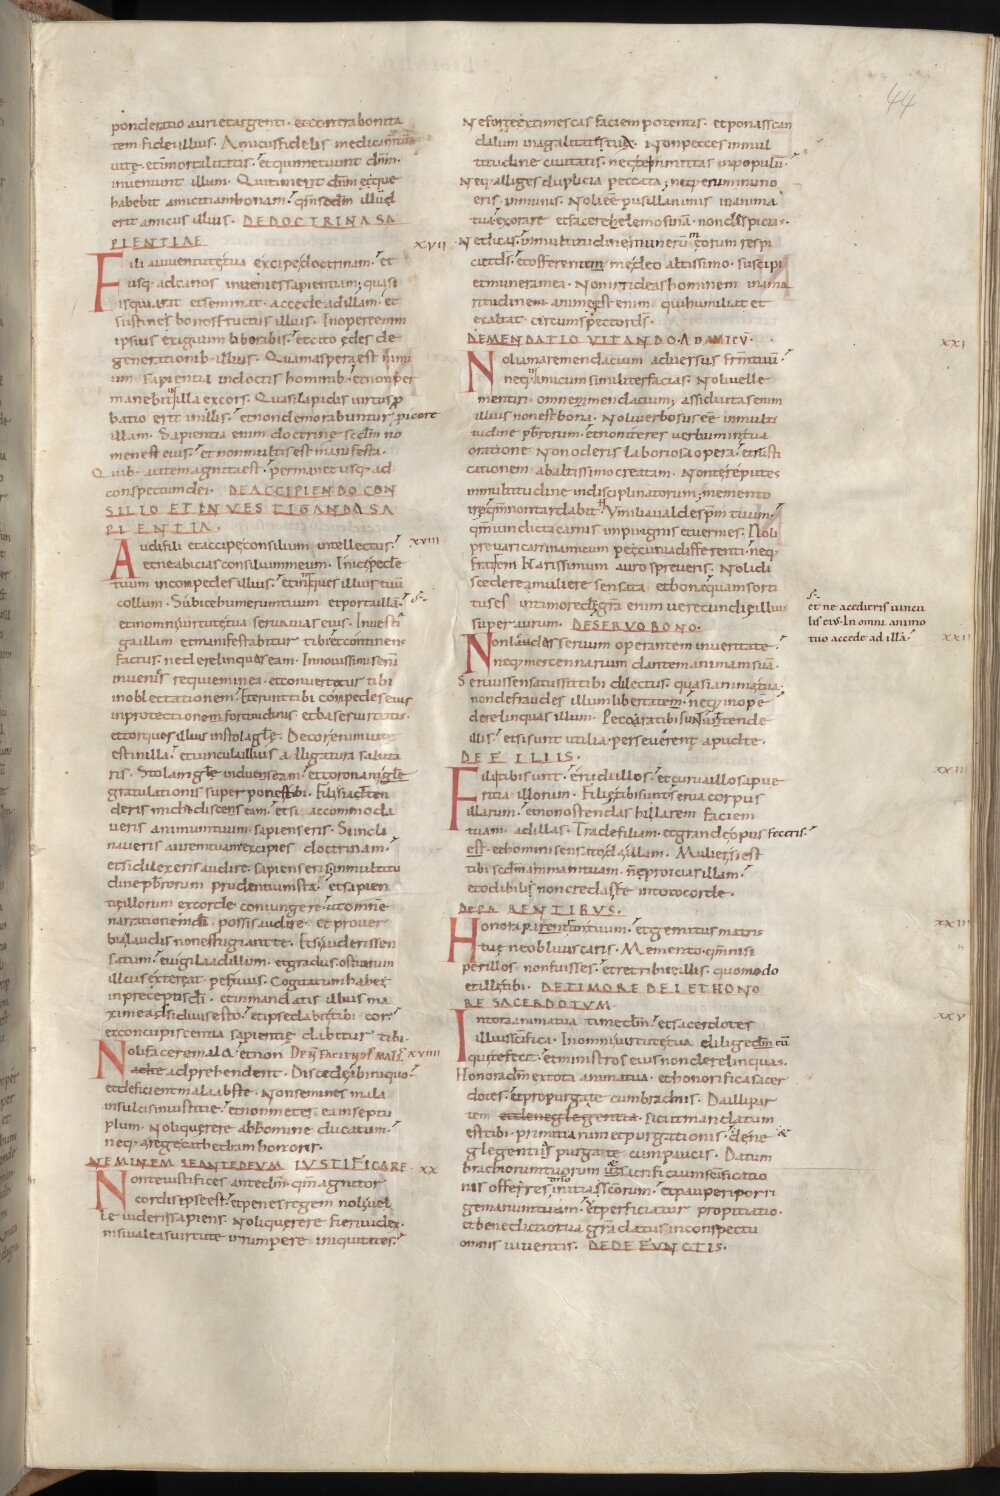 44
ponderatio auri et argenti · et contra bonita
tem fidei illius. Amicus fidelis medicamtũ
uitę · et inmortalitatis · et qui metuunt dnm̄ ·
inuenient illum. Qui timent dnm̄ ęque
habebit amicitiam bonam · qm̄ secdm̄ illũ ẽl
erit amicus illius. DE DOCTRINA SA
PIENTIAE XVII
Fili a iuuentute tua excipe doctrinam · et
usq; ad canos inuenies sapientiam; quasi
is qui arat et seminat · accede ad illam · et
sustines bonos fructus illius. In opere enim
ipsius exiguum laboribis · et cito ędes de
generationib; illius. Quam aspera est nimi
um · sapientia indoctis hominib; · et non per
manebit in illa excors. Quasi lapidis uirtus p̱
batio erit in illis · et non demorabuntur picere
illam. Sapientia enim doctrinę secdm̄ no
men est eius · et non multis est manifesta.
Quib; autem agnita est · permanet usq; ad
conspectum dei. DE ACCIPIENDO CON
SILIO ET INVESTIGANDA SA
PIENTIA.
Audi fili et accipe consilium intellectus · XVIII
et ne abicias consilium meum. Inice pedẽ
tuum in compedes illius · et in torques illius tuũ
collum. Subice humerum tuum et porta illã ·
et in omni uirtute tua serua uias eius. Inuesti
ga illam et manifestabitur tibi et continens
factus · ne derelinquas eam. In nouissimis enĩ
inuenies requiem in ea · et conuertetur tibi
in oblectationem. Et erunt tibi compedes eius
in protectionem fortitudinis · et bases uirtutis ·
et torques illius in stola glę. Decor enim uitę
est in illa · et uincula illius alligatura saluta
ris. Stola nglę indues eam · et corona nglę
gratulationis superpones tibi. Fili si adten
deris mihi disces eam · et si accommoda
ueris animum tuum · sapiens eris. Si incli
naueris aurem tuam excipies doctrinam ·
et si dilexeris audire · sapiens eris; in multitu
dine pbrorum prudentium sta · et sapien
tię illorum ex corde coniungere · ut omnẽ
narrationem dĩ possis audire · et prouer
bia laudis non effugiant te. Et si uideris sen
satum · euigila ad illum · et gradus ostiorum
illius exterat pes tuus. Cogitatum habe
in preceptis dĩ · et in mandatis illius ma
xime adsiduus esto · et ipse dabit tibi cor ·
et concupiscentia sapientię dabitur tibi ·
Noli facere mala et non DE N̄ FACIENDIS MALIS XVIIII
te adprehendent. Discede ab iniquo ·
et deficient mala abs te. Non semines mala
in sulcis iniustitię · et non metes ea in septu
plum. Noli querere ab homine ducatum ·
neq; a rege cathedram honoris.
NEMINEM SE ANTE DEVM IUSTIFICARE XX
Non te iustifices ante dm̄ · qm̄ agnitor
cordis ipse est · et penes regem noli uel
le uideri sapiens. Noli querere fieri iudex ·
nisi ualeas uirtute inrumpere iniquitates ·
Ne forte extimescas faciem potentis · et ponas scan
dalum in agilitate tua. Non pecces in mul
titudine ciuitatis · nec te inmittas in populũ ·
Neq; alliges duplicia peccata; neq; enim in uno
eris inmunis. Noli eẽ pusillanimis in anima
tua · exorare et facere helemosinã · non despicias.
Ne dicas · in multitudine munerũ meorum respi
ciet ds̄ · et offerentem me deo altissimo · suscipi
et munera mea. Non inrideas hominem in ama
ritudinem animę est enim qui humiliat et
exaltat · circumspector ds̄.
DE MENDATIO VITANDO AD AMICŨ · XXI
Noli amare mendacium aduersus fratrem tuũ ·
neq; in amicum similiter facias. Noli uelle
mentiri · omnem mendacium; assiduitas enim
illius non est bona. Noli uerbosus eẽ in multi
tudine pbrorum · et non iteres uerbum in tua
oratione. Non oderis laboriosa opera · et rusti
cationem ab altissimo creatam. Non te reputes
in multitudine indisciplinatorum; memento
irę qm̄ non tardabit. Humilia ualde spm̄ tuum ·
qm̄ uindicta carnis impii ignis et uermes. Noli
preuaricari in amicum pecunia differenti · neq;
fratrem karissimum auro spreueris. Noli di
scedere a muliere sensata et bona · quam sorti
tus es in timore dn̄i; gr̃a enim uerecundię illius
super aurum. DE SERVO BONO.
et ne acedieris uincu
lis eius · In omni animo
tuo accede ad illã ·
Non lędas seruum operantem in ueritate · XXII
neq; mercennarium dantem animam suã.
Seruus sensatus sit tibi dilectus · quasi anima tua ·
non defraudes illum libertatem · neq; inopẽ
derelinquas illum. Pecora tibi sunt intende
illis · et si sunt utilia · perseuerent apud te.
DE FILIIS.
Filii tibi sunt · erudi illos · et curua illos a pue XXIII
ritia illorum. Filię tibi sunt serua corpus
illarum · et non ostendas hillarem faciem
tuam ad illas. Trade filiam · et grande opus feceris ·
est · et homini sensato da illam. Mulier si est
tibi secdm̄ animam tuam · ne proicias illam ·
et odibili non credas te in toto corde.
DE PARENTIBVS.
Honora parentem tuum · et gemitus matris XXIIII
tuę ne obliuiscaris. Memento · qm̄ nisi
per illos non fuisses · et retribue illis · quomodo
et illi tibi. DE TIMORE DEI ET HONO
RE SACERDOTVM
In tota anima tua time dm̄ · et sacerdotes XXV
illius scifica. In omni uirtute tua dilige dm̄ eũ
qui te fecit · et ministros eius non derelinquas.
Honora dm̄ ex tota anima tua · et honorifica sacer
dotes · et propurga te cum brachiis. Da illi par
tem et de neglegentia · sicut mandatum
est tibi · primitiarum et purgationis · de ne
glegentiis purga te cum paucis. Datum
brachiorum tuorum et sacrificium scificatio
nis offeres dn̄o initia scorum · et pauperi porri
ge manum tuam · et perficiatur propitiatio ·
et benedictio tua gr̃a datus in conspectu
omnis uiuentis. DE DEFVNCTIS.